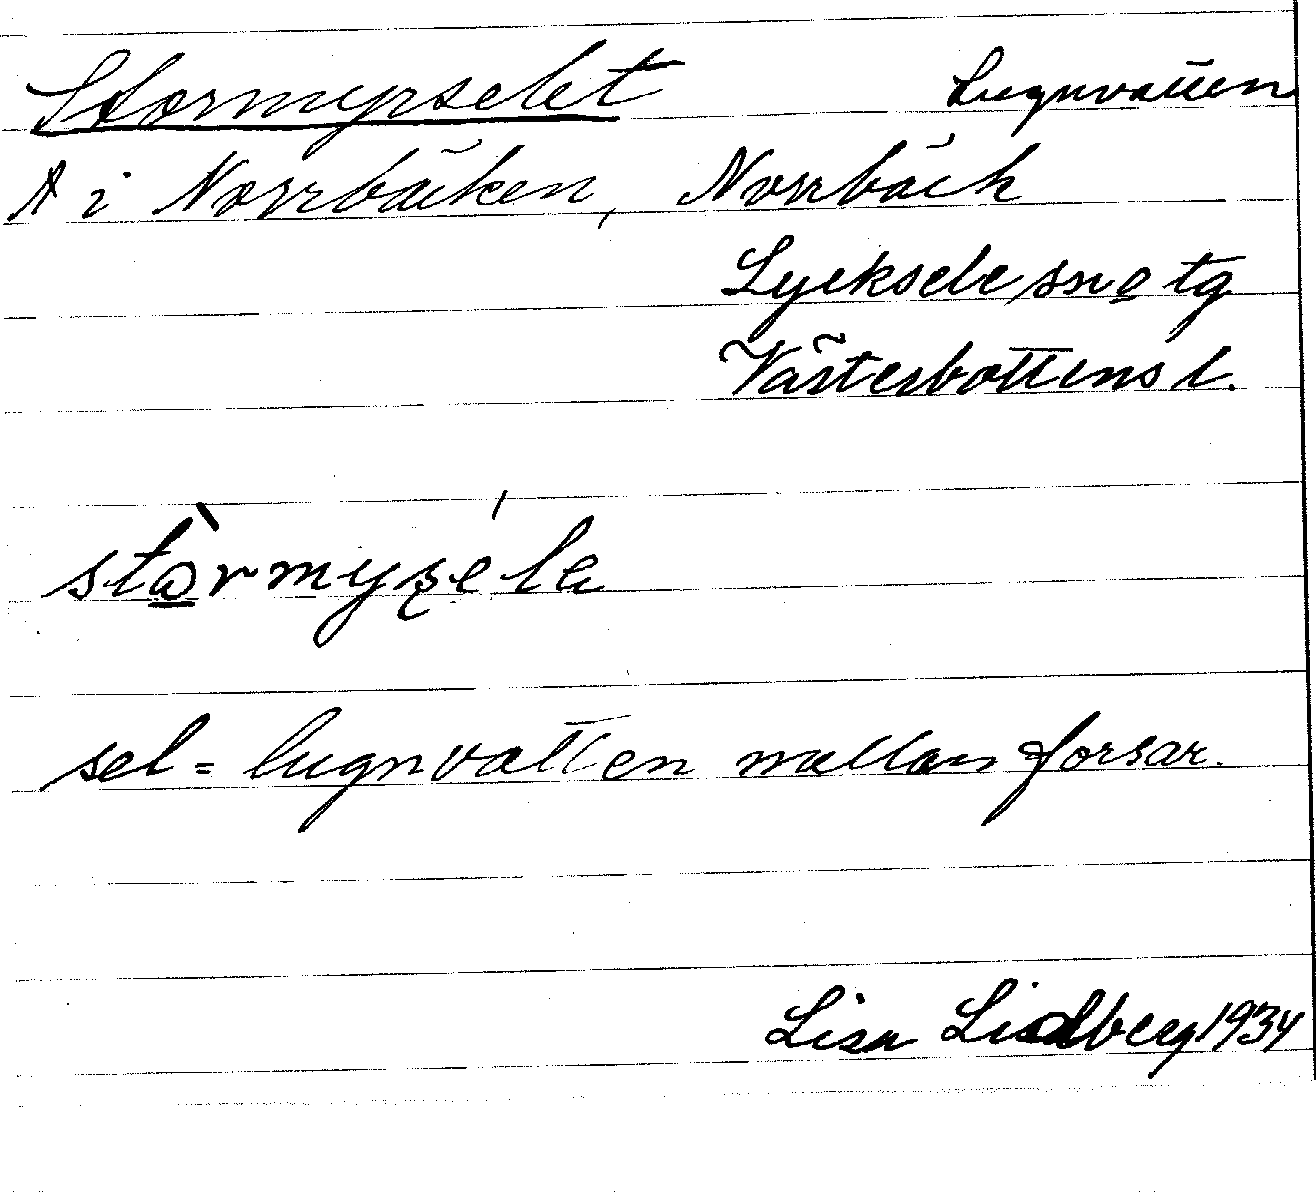 Stormyrselet Lugnvatten
i Norrbäcken, Norrbäck
Lycksele sn o tg
Västerbottens l.
sel = lugnvatten mellan forsar.
Lisa Lidberg 1934